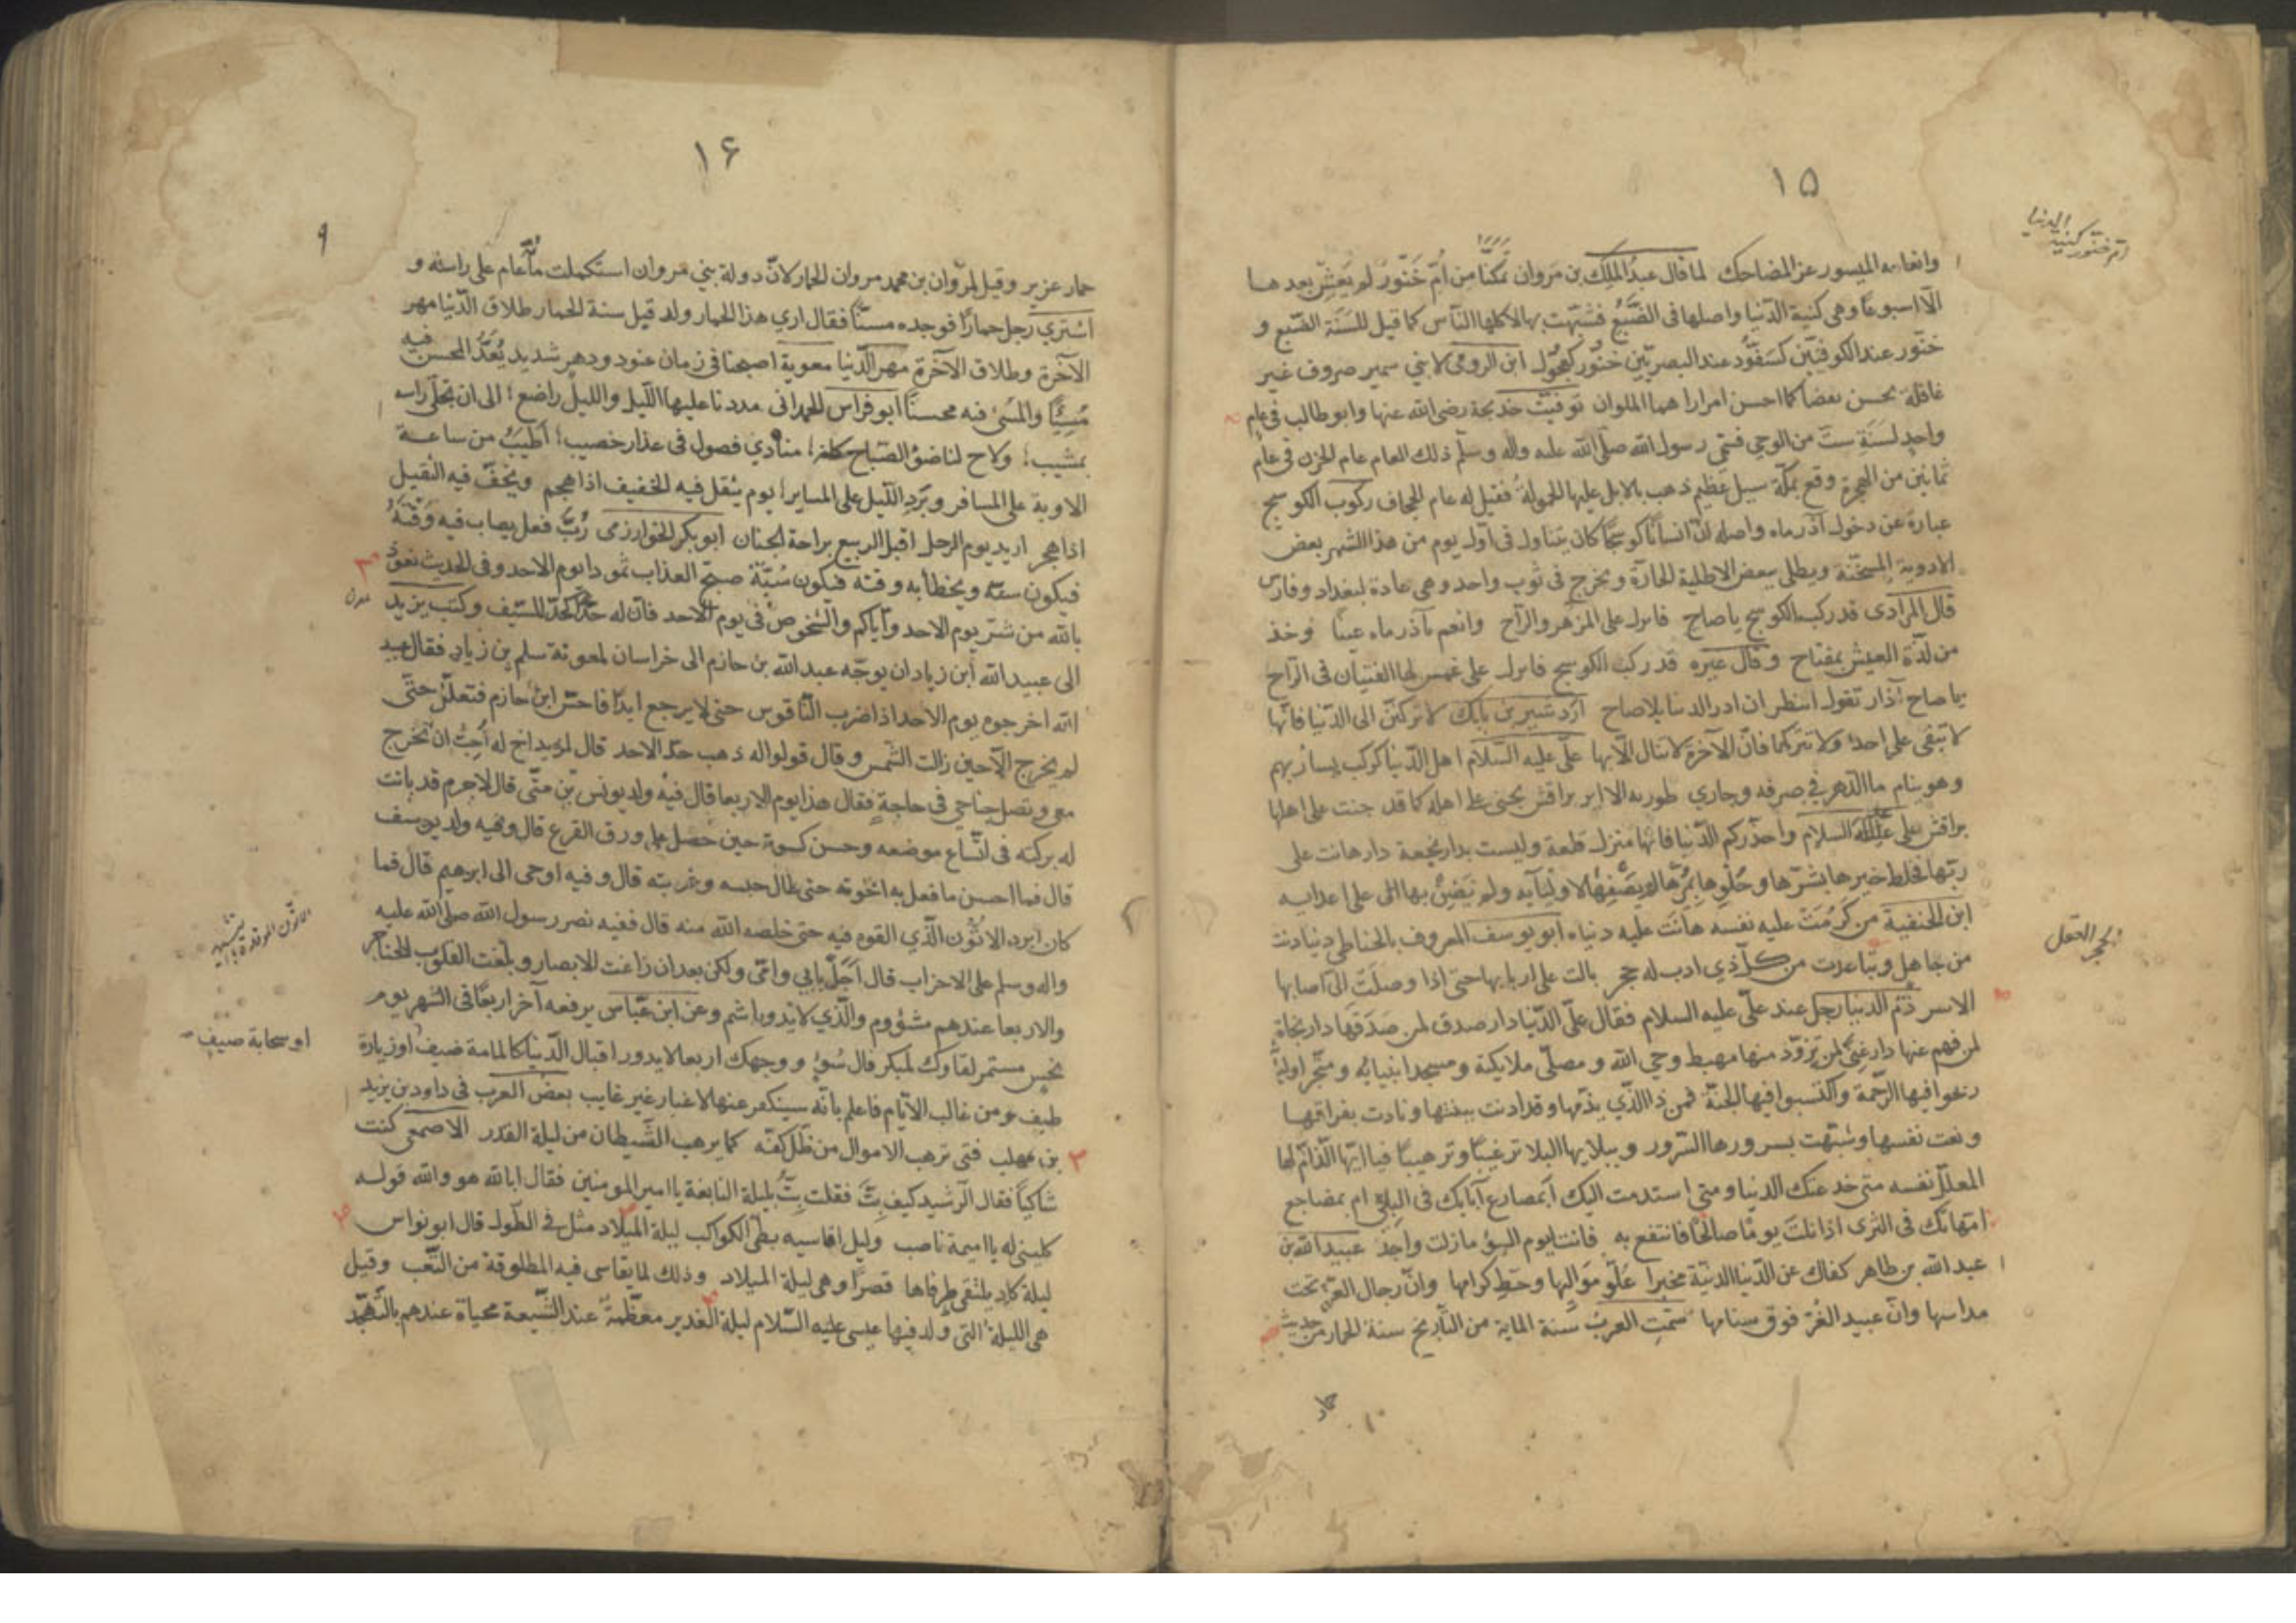 ١٥
ام خنور كنية الدنيا
وانعامه الميسور عز المضاحك لما قال عبدُ الملِك بن مَروان تمكنَّا من اُمّ خَنّور لم يَعِشْ بعدها
الّا اسبوعًا وهي كنية الدّنيا واصلها في الضَّبُع فشبّهت بها لاكلها النّاس كما قيل للسَنَة الضّبع و
خنّور عند الكوفيّين كسَفّود عند البصريّين خنّور كعِجّول ابن الرومي لابني سمير صروف غير
غافلة يحسن بعضا كما احسن امرارا هما الملوان توفيت خديجة رضي الله عنها وابو طالب في عام
واحد لسَنَةِ ستّ من الوحي فسمّى رسول الله صلّى الله عليه واله وسلّم ذلك العام عام الحزن في عام
ثمانين من الهجرة وقع بمكّة سيل عظيم ذهب بالابل عليها الحمولة فقيل له عام الجحاف ركوب الكوسج
عبارة عن دخول آذرماه واصله انّ انسانًا كوسجًا كان يتناول في اول يوم من هذا الشهر بعض
الادوية المسخّنة ويطلى ببعض الاطلية الحارّة ويخرج في ثوب واحد وهي عادة لبغداد وفارس
قال المرادى قد ركب الكوسج يا صاح فانزل على المزهر والرّاح وانعم بآذرماه عيشًا وخذ
من لذّة العيش بمفتاح وقال غيره قد ركب الكوسج فانزل على لها الفتيان في الرّاح
يا صاح آذار تقول انتظر ان ادر الدنيا بلا صاح اردشير بن بابك لا تركننّ الى الدّنيا فانّها
لا تبقى على احد ولا تتركها فانّ الآخرة لا تنال الّا بها علىّ عليه السّلام اهل الدّنيا كركب يسار بهم
وهو ينام ما الدّهر في صرفه وجاري طوره الا براقش يجنى على اهله كما قد جنت على اهلها
براقش علي عليه السلام واحذّركم الدّنيا فانّها منزل قلعة وليست بدار نجعة دار هانت على
ربّها فخلط خيرها بشرّها وحُلْوها بمُرّها لم يصفها لاوليآيه ولم يَضِنّ بها على اعدايه
ابن الحنفية من كَرُمَتْ عليه نفسه هانت عليه دنياه ابو يوسف المعروف بالحناطي دنيا دنت
الحجر العقل
من جاهل وتباعدت من كلّ ذي ادب له حجر بالت على اربابها حتى اذا وصلت الى اصابها
الاسر ذَمّ الدنيا رجل عند علىّ عليه السلام فقال علىّ الدّنيا دار صدق لمن صَدَقَها دار نجاة
لمن فهم عنها دار غنىً لمن تزوّد منها مهبط وحي الله ومصلّى ملايكته ومسجد انبيائه ومتّجر اوليآئه
ربحوا فيها الرّحمة واكتسبوا فيها الجنّة فمن ذا الّذي يذمّها وقد اذنت ببينها ونادت بفراقها
ونعت نفسها وشبّهت بسرورها السّرور وببلايها البلا ترغيبًا وترهيبًا فيا ايّها الذّامّ لها
المعلّل نفسه متى خدعتك الدنيا ومتى استذمت اليك أبمصارع آبايك في البلى ام بمضاجع
امّهاتك في الثرى اذا نلت يومًا صالحًا فانتفع به فانت ليوم السوء ما زلت واجد عبيد الله بن
عبد الله بن طاهر كفاك عن الدّنيا الدنيّة مخبرا عُلُوّ مَواليها وحَطّ كرامها وانّ رجال العزّ تحت
مداسها وانّ عبيد الغزّ فوق سنامها سَمّت العربُ سَنة الماية من التّاريخ سنة الحمار من حديث
حمار
١٦
٩
حمار عزير وقيل لمروان بن محمد مروان الحمار لانّ دولة بني مروان استكملت مأةَ عام على راسه و
اشترى رجل حمارًا فوجده مسنًّا فقال ارى هذا الحمار ولد قيل سنة الحمار طلاق الدّنيا مهر
الآخرة وطلاق الآخرة مهر الدّنيا معوية اصبحنا في زمان عنود ودهر شديد يُعَدّ المحسن فيه
مُسِيًّا والمُسِيّ فيه محسنًا ابو فراس الحمداني مددنا علينا الليل والليل راضع الى ان تحلّى راسه
بمشيب ولاح لنا ضوء الصّباح كانه منادي فصول في عذار خصيب اَطْيَبُ من ساعة
الاوبة على المسافر وبَرْد اللّيل على المساير يوم يثقل فيه الخفيف اذا هجم ويخفّ فيه الثقيل
اذا هجر اريد يوم الرحل اقبل الربيع براحة الجنان ابو بكر الخوارزمى رُبّ فعل يصاب فيه وَقْتُهُ
فيكون سنّة ويخطأ به وقته فيكون سُبّة صبّح العذاب ثمودا يوم الاحد وفي الحديث نعوذ
بالله من شرّ يوم الاحد وايّاكم والشخوصَ في يوم الاحد فانّ له حدّا كحدّ السّيف وكتب يزيد
الى عبيد الله ابن زياد ان يوجّه عبد الله بن حازم الى خراسان لمعونة سلم بن زياد فقال عبيد
الله اخرجوه يوم الاحد اذا ضرب النّاقوس حتى لا يرجع ابدًا فاحسّ ابن حازم فتعلّل حتّى
لم يخرج الّا حين زالت الشّمس وقال قولوا له ذهب حدّ الاحد قال لمزيد اخ له أحِبُّ ان تخرج
معي وتصل جناحي في حاجةٍ فقال هذا يوم الاربعا قال فيه ولد يونس بن متّى قال لا جرم قد بانت
له بركته في اتّساع موضعه وحسن كسوته حين حصل على ورق القرع قال وفيه ولد يوسف
قال فما احسن ما فعل به اخوته حتى طال حبسه وغربته قال وفيه اوحى الى ابرهيم قال فما
كان ابرد الاتّون الّذي القوه فيه حتى خلصه الله منه قال ففيه نصر رسول الله صلى الله عليه
واله وسلم على الاحزاب قال اَجَلْ بابي وامّى ولكن بعد ان زاغت الابصار وبلغت القلوب الحناجر
والاربعا عندهم مشؤوم والّذي لا يدور اشم وعن ابن عبّاس يرفعه آخر اربعًا في الشهر يوم
نحس مستمر لقاؤك لمبكر فال سُوء ووجهك اربعا لا يدور اقبال الدّنيا كالمامة ضيف او زيارة
او سحابة صيف
طيف ومن غالب الايّام فاعلم بانّه سينكص عنها لاغبا غير غايب بعض العرب في داود بن يزيد
بن مهلب فتى ترهب الاموال من ظلّ كفّه كما يرهب الشّيطان من ليلة القدر الاصمعي كنت
شاكيًا فقال الرّشيد كيف بِتّ فقلت بِتُّ بليلة النابغة يا امير المومنين فقال انا لله هو والله قوله
كليني لهم يا اميمة ناصب وليل اقاسيه بطئ الكواكب ليلة الميلاد مثل في الطّول قال ابو نواس
ليلة كاد يلتقى طرفاها قصرًا وهى ليلة الميلاد وذلك لما يقاسى فيه المطلوقة من التّعب وقيل
هى الليلة التى ولد فيها عيسى عليه السّلام ليلة الغدير معظّمة عند الشّيعة محياة عندهم بالتّهجّد